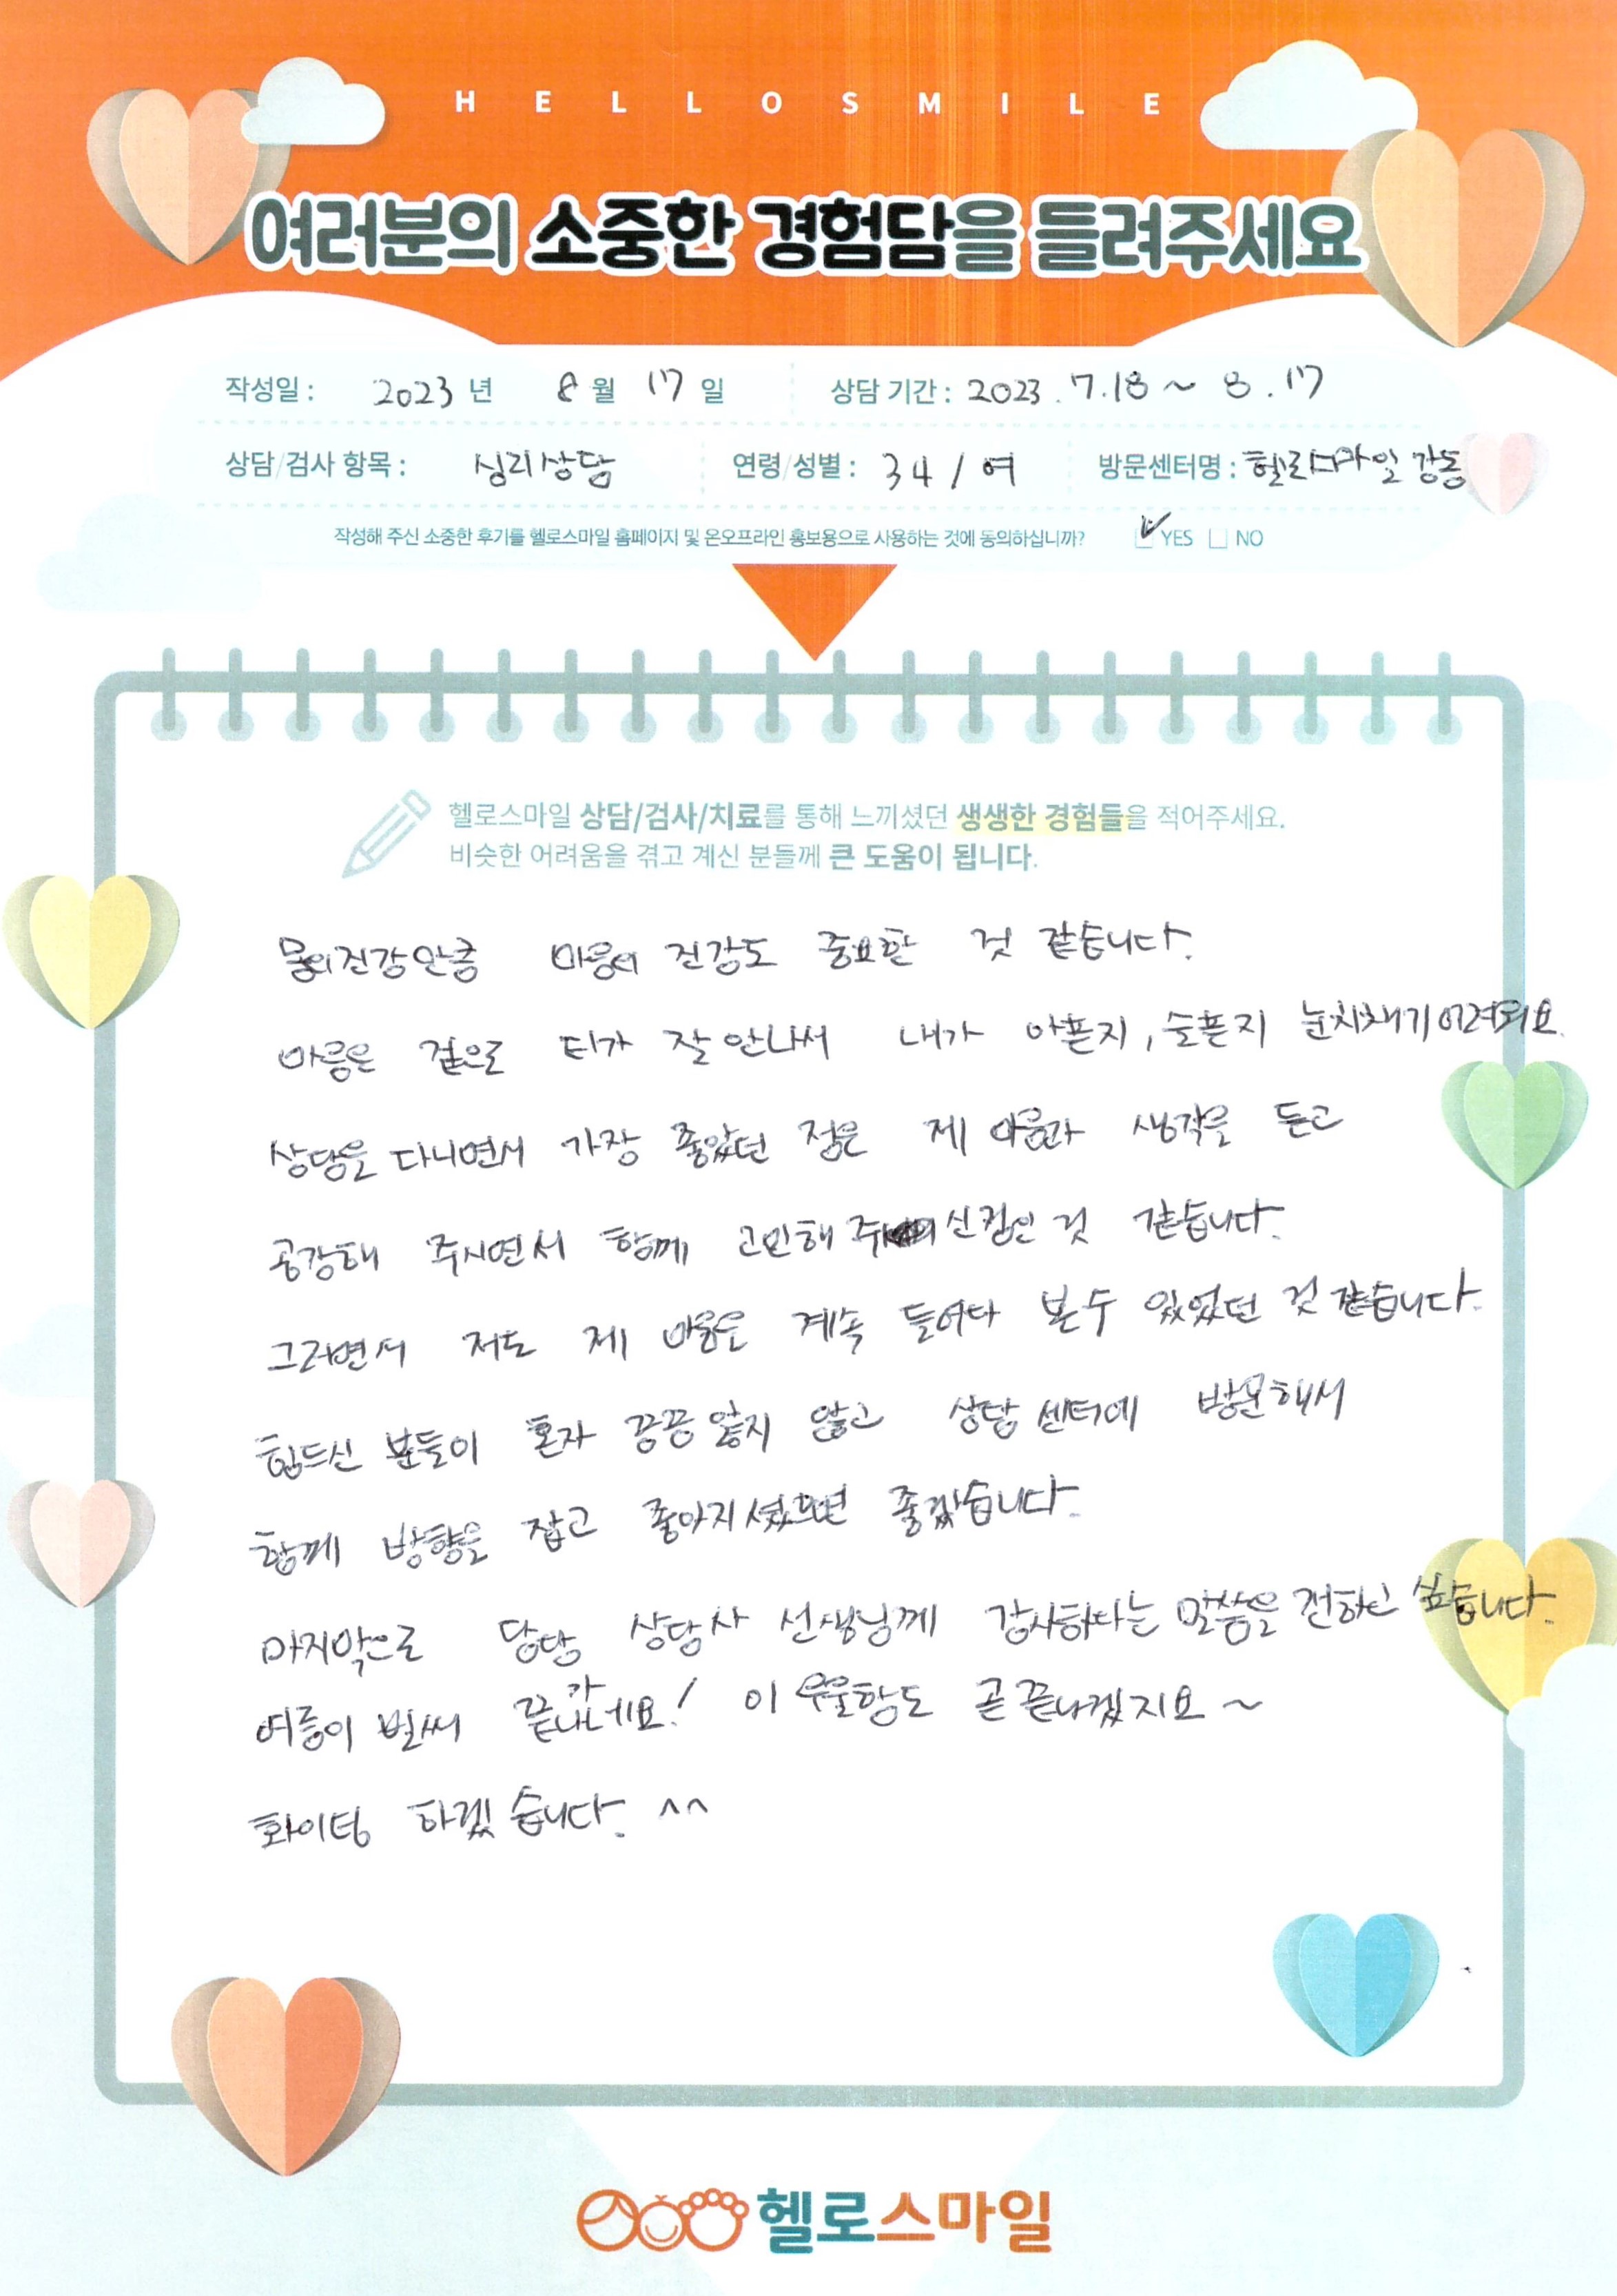 HELLOSMILE
여러분의 소중한 경험담을 들려주세요
작성일 : 2023 년 8 월 17 일 상담 기간 : 2023. 7.18 ~ 8.17
상담/검사 항목 : 심리상담 연령/성별 : 34 / 여 방문센터명 : 헬로스마일 강동
작성해 주신 소중한 후기를 헬로스마일 홈페이지 및 온오프라인 홍보용으로 사용하는 것에 동의하십니까? YES NO
헬로스마일 상담/검사/치료를 통해 느끼셨던 생생한 경험들을 적어주세요.
비슷한 어려움을 겪고 계신 분들께 큰 도움이 됩니다.
몸의건강만큼 마음의 건강도 중요한 것 같습니다.
마음은 겉으로 티가 잘 안나서 내가 아픈지, 슬픈지 눈치채기 어려워요.
상담을 다니면서 가장 좋았던 점은 제 마음과 생각을 듣고
공감해 주시면서 함께 고민해 주신점인 것 같습니다.
그러면서 저도 제 마음을 계속 들여다 볼수 있었던 것 같습니다.
힘드신 분들이 혼자 끙끙 앓지 않고 상담 센터에 방문해서
함께 방향을 잡고 좋아지셨으면 좋겠습니다.
마지막으로 담당 상담사 선생님께 감사하다는 말씀을 전하고 싶습니다.
여름이 벌써 끝나가네요! 이 우울함도 곧 끝나겠지요~
화이팅 하겠습니다. ^^
헬로스마일